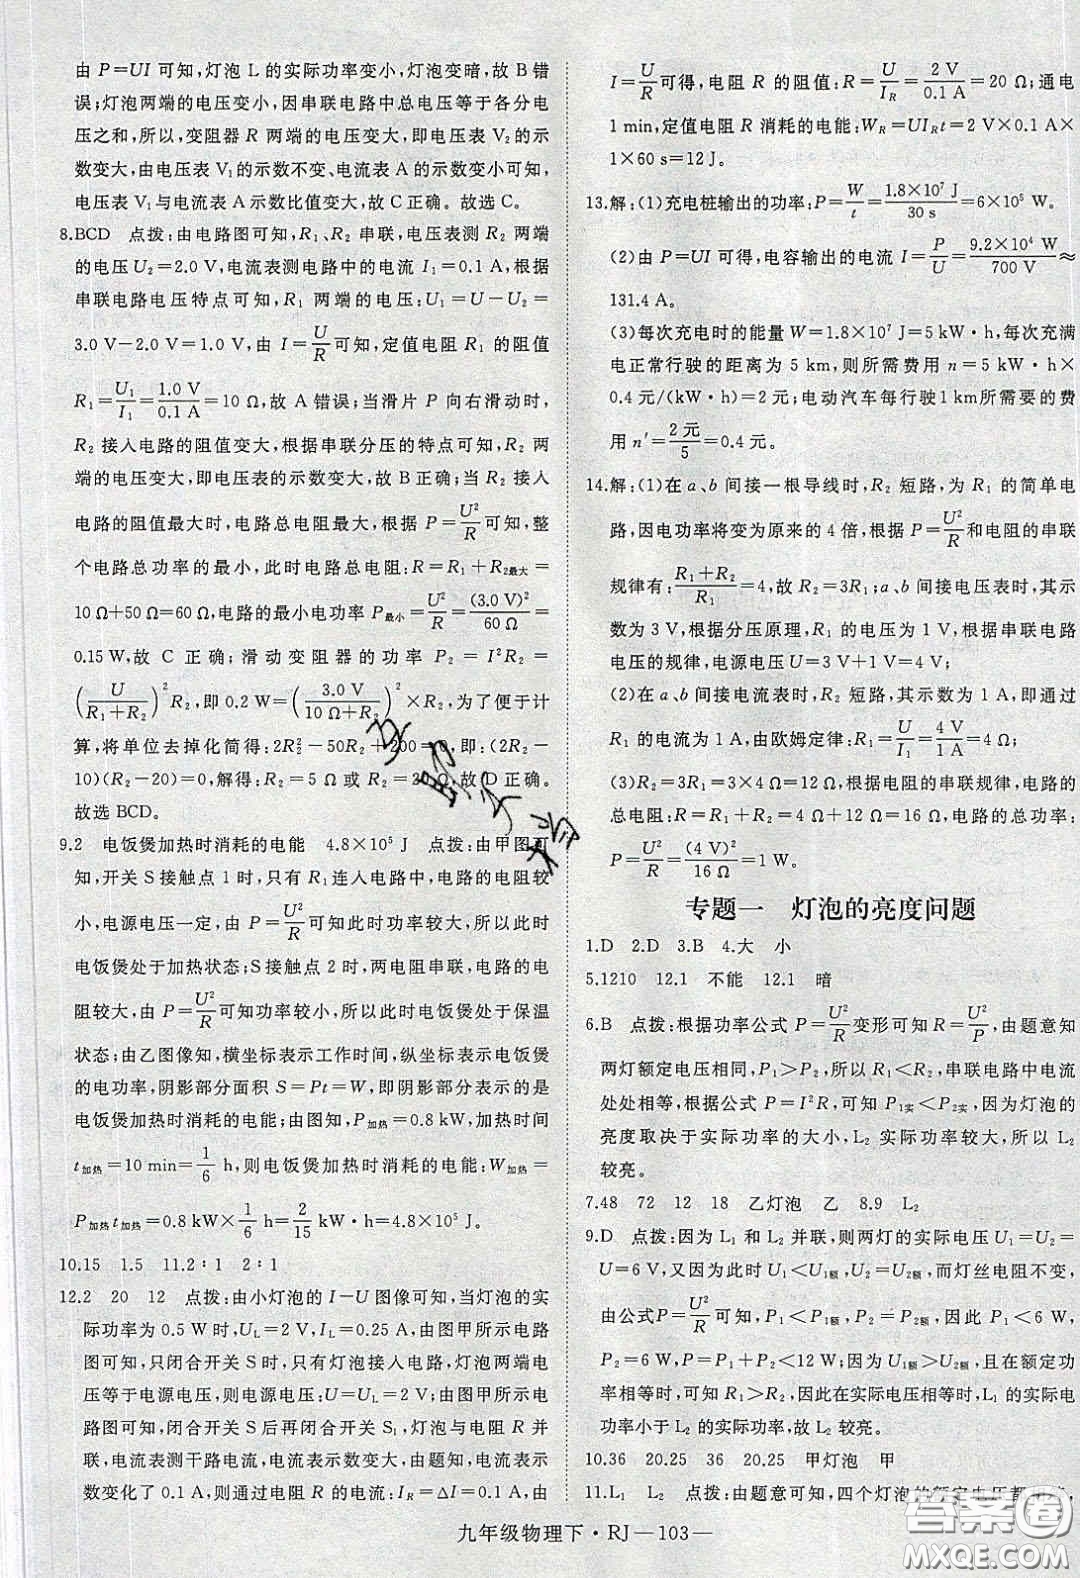 由 P=UI 可知,灯泡 L 的实际功率变小,灯泡变暗,故 B 错
误;灯泡两端的电压变小,因串联电路中总电压等于各分电
压之和,所以,变阻器 R 两端的电压变大,即电压表 V₂的示
数变大,由电压表 V₁的示数不变、电流表 A 的示数变小可知,
电压表 V₁与电流表 A 示数比值变大,故 C 正确。故选 C。
8.BCD 点拨:由电路图可知,R₁、R₂ 串联,电压表测 R₂ 两端
的电压 U₂=2.0 V,电流表测电路中的电流 I₁=0.1 A,根据
串联电路电压特点可知,R₁ 两端的电压:U₁=U-U₂=
3.0 V-2.0 V=1.0 V,由 I=U/R 可知,定值电阻 R₁ 的阻值
R₁=U₁/I₁=1.0 V/0.1 A=10 Ω,故 A 错误;当滑片 P 向右滑动时,
R₂ 接入电路的阻值变大,根据串联分压的特点可知,R₂ 两
端的电压变大,即电压表的示数变大,故 B 正确;当 R₂ 接入
电路的阻值最大时,电路总电阻最大,根据 P=U²/R可知,整
个电路总功率的最小,此时电路总电阻:R=R₁+R₂最大=
10 Ω+50 Ω=60 Ω,电路的最小电功率 P最小=U²/R=(3.0 V)²/60 Ω=
0.15 W,故 C 正确;滑动变阻器的功率 P₂=I²R₂=
(U/(R₁+R₂))²R₂,即 0.2 W=(3.0 V/(10 Ω+R₂))²×R₂,为了便于计
算,将单位去掉化简得:2R₂²-50R₂+200=0,即:(2R₂-
10)(R₂-20)=0,解得:R₂=5 Ω 或 R₂=20 Ω,故 D 正确。
故选 BCD。
9.2 电饭煲加热时消耗的电能 4.8×10⁵ J 点拨:由甲图可
知,开关 S 接触点 1 时,只有 R₁连入电路中,电路的电阻较
小,电源电压一定,由 P=U²/R可知功率较大,所以此时
电饭煲处于加热状态;S 接触点 2 时,两电阻串联,电路的电
阻较大,由 P=U²/R可知功率较小,所以此时电饭煲处于保温
状态;由乙图像知,横坐标表示工作时间,纵坐标表示电饭煲
的电功率,阴影部分面积 S=Pt=W,即阴影部分表示的是
电饭煲加热时消耗的电能;由图知,P加热=0.8 kW,加热时间
t加热=10 min=1/6 h,则电饭煲加热时消耗的电能:W加热=
P加热t加热=0.8 kW×1/6 h=2/15 kW·h=4.8×10⁵ J。
10.15 1.5 11.2∶1 2∶1
12.2 20 12 点拨:由小灯泡的 I-U 图像可知,当灯泡的实
际功率为 0.5 W 时,U_L=2 V,I_L=0.25 A,由图甲所示电路
图可知,只闭合开关 S 时,只有灯泡接入电路,灯泡两端电
压等于电源电压,则电源电压:U=U_L=2 V;由图甲所示电
路图可知,闭合开关 S 后再闭合开关 S₁,灯泡与电阻 R 并
联,电流表测干路电流,通过灯泡的电流不变,电流表示
数变化了 0.1 A,则通过电阻 R 的电流:I_R=△I=0.1 A,由
I=U/R可得,电阻 R 的阻值:R=U/I_R=2 V/0.1 A=20 Ω;通电
1 min,定值电阻 R 消耗的电能:W_R=UI_Rt=2 V×0.1 A×
1×60 s=12 J。
13.解:(1)充电桩输出的功率:P=W/t=1.8×10⁷ J/30 s=6×10⁵ W。
(2)由 P=UI 可得,电容输出的电流 I=P/U=9.2×10⁴ W/700 V≈
131.4 A。
(3)每次充电时的能量 W=1.8×10⁷ J=5 kW·h,每次充满
电正常行驶的距离为 5 km,则所需费用 n=5 kW·h×
0.4 元/(kW·h)=2 元;电动汽车每行驶 1 km所需要的费
用 n′=2 元/5=0.4 元。
14.解:(1)在 a、b 间接一根导线时,R₂ 短路,为 R₁ 的简单电
路,因电功率将变为原来的 4 倍,根据 P=U²/R和电阻的串联
规律有:(R₁+R₂)/R₁=4,故 R₂=3R₁;a、b 间接电压表时,其示
数为 3 V,根据分压原理,R₁ 的电压为 1 V,根据串联电路
电压的规律,电源电压 U=3 V+1 V=4 V;
(2)在 a、b 间接电流表时,R₂ 短路,其示数为 1 A,即通过
R₁ 的电流为 1 A,由欧姆定律:R₁=U/I₁=4 V/1 A=4 Ω;
(3)R₂=3R₁=3×4 Ω=12 Ω,根据电阻的串联规律,电路的
总电阻:R=R₁+R₂=4 Ω+12 Ω=16 Ω,电路的总功率:
P=U²/R=(4 V)²/16 Ω=1 W。
专题一 灯泡的亮度问题
1.D 2.D 3.B 4.大 小
5.1210 12.1 不能 12.1 暗
6.B 点拨:根据功率公式 P=U²/R变形可知 R=U²/P,由题意知
两灯额定电压相同,P₁>P₂,所以 R₁<R₂,串联电路中电流
处处相等,根据公式 P=I²R,可知 P₁实<P₂实,因为灯泡的
亮度取决于实际功率的大小,L₂ 实际功率较大,所以 L₂
较亮。
7.48 72 12 18 乙灯泡 乙 8.9 L₂
9.D 点拨:因为 L₁ 和 L₂ 并联,则两灯的实际电压 U₁=U₂=
U=6 V,又因为此时 U₁<U₁额,U₂=U₂额,而灯丝电阻不变,
由公式P=U²/R可知,P₁<P₁额,P₂=P₂额,因此 P₁<6 W,
P₂=6 W,P=P₁+P₂<12 W;因为 U₁额>U₂额,且在额定功
率相等时,可知 R₁>R₂,因此在实际电压相等时,L₁ 的实际电
功率小于 L₂ 的实际功率,故 L₂ 较亮。
10.36 20.25 36 20.25 甲灯泡 甲
11.L₁ L₂ 点拨:由题意可知,四个灯泡的额定电压都
九年级物理下·RJ—103—
答案圈
MXQE.COM